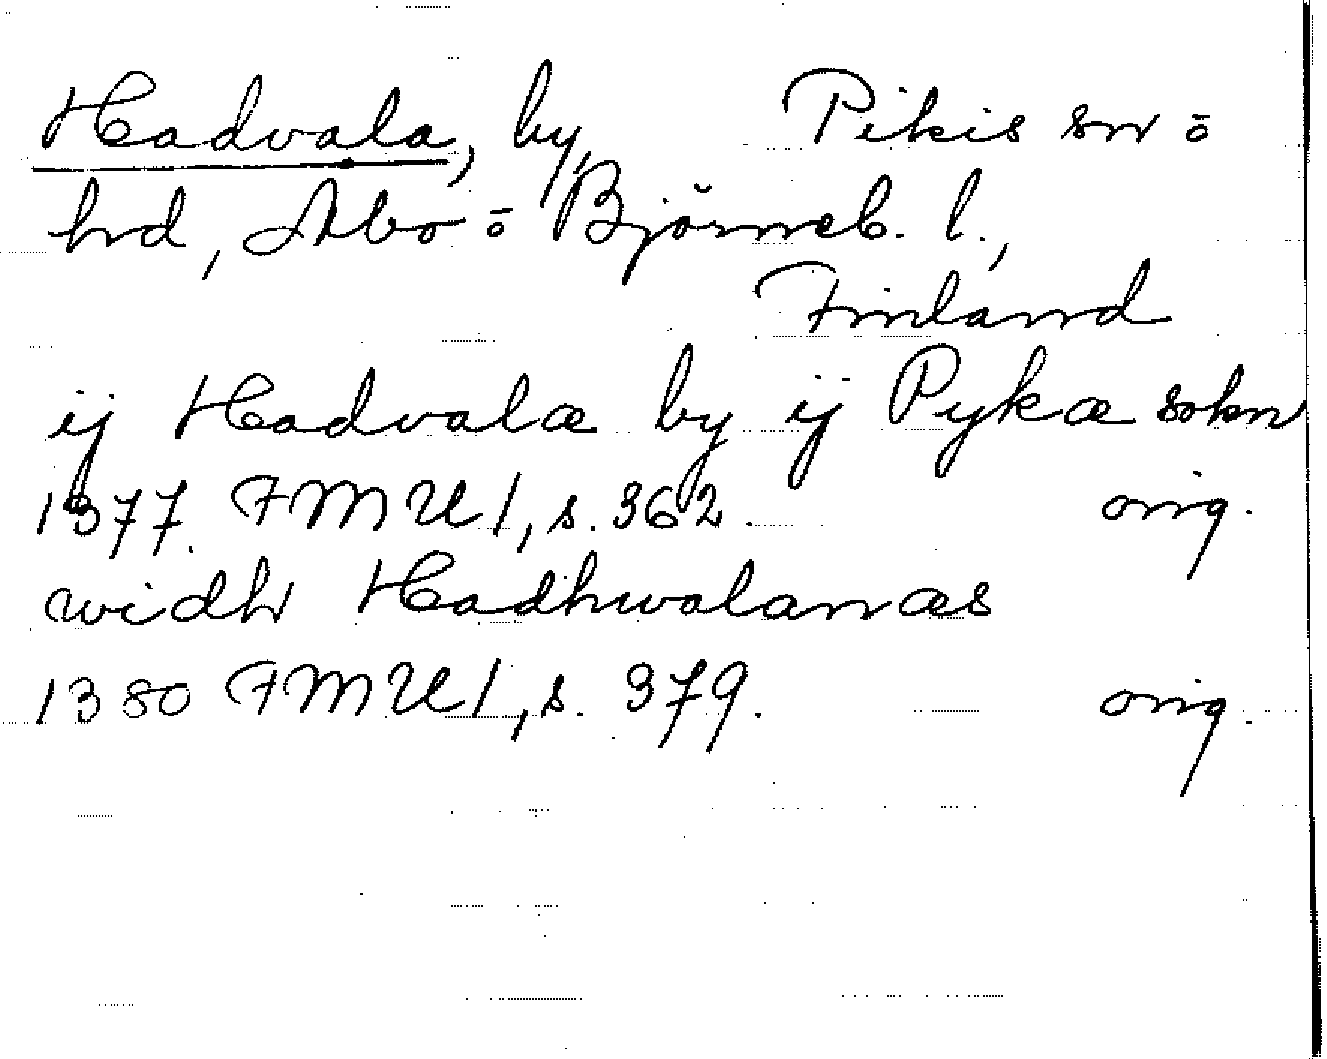 Hadvala, by, Pikis sn ō
hd, Åbo ō Björneb. l.,
Finland
ij Hadvalæ by ij Pykæ sokn
1377. FMU I, s. 362. orig.
widh Hadhwalanæs
1380 FMU I, s. 379. orig.